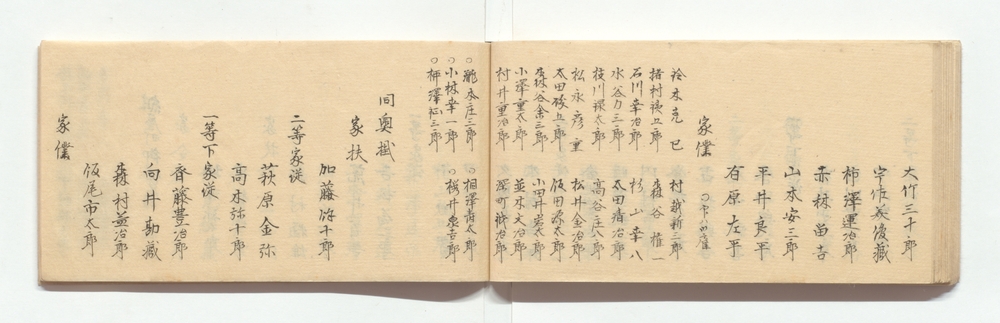 大竹三十郎
宇佐美俊蔵
柿澤運治郎
赤林茁吉
山本安三郎
平井良平
有原左平
家僕
鈴木克巳
村越新三郎
措村猿五郎
森谷権一
石川幸治郎
杉山幸八
水谷力三郎
太田清治郎
枝川禄太郎
高谷庄八郎
松永彦重
松井金治郎
太田破五郎
飯田源太郎
長谷舎三郎
小田井岩太郎
小澤重太郎
並木文治郎
村井重治郎
澤町禄治郎
○瀧本庄三郎
○相澤清太郎
○小林幸一郎
○桜井泉吉郎
○柳澤松三郎
同奥掛
家扶
加藤治十郎
二等家従
萩原金弥
高木弥十郎
一等下家従
斎藤豊治郎
向井勘蔵
森村並治郎
飯尾市太郎
家僕